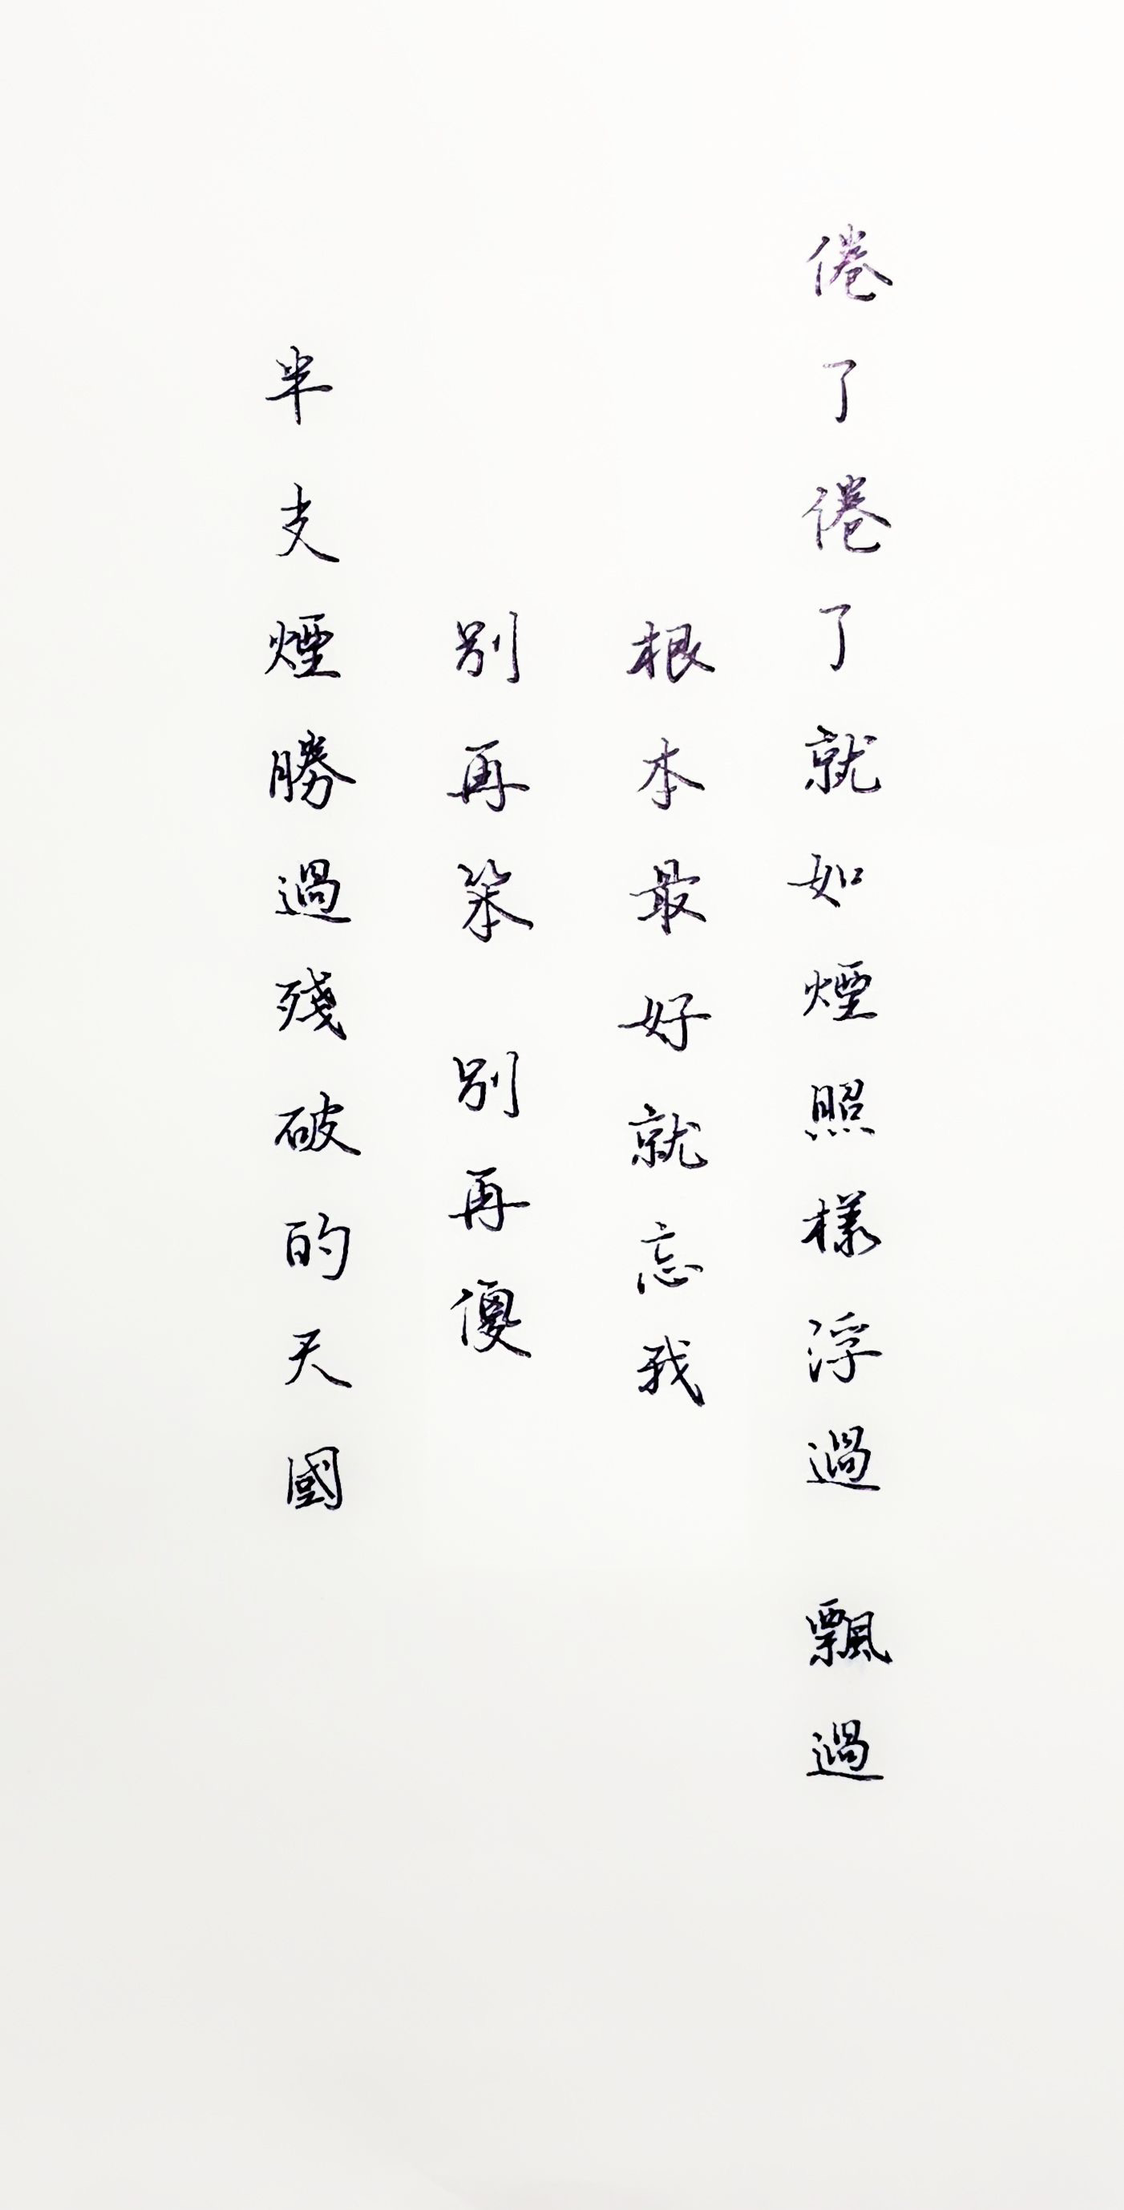 倦了倦了就如煙照樣浮過 飄過
根本最好就忘我
別再笨 別再傻
半支煙勝過殘破的天國